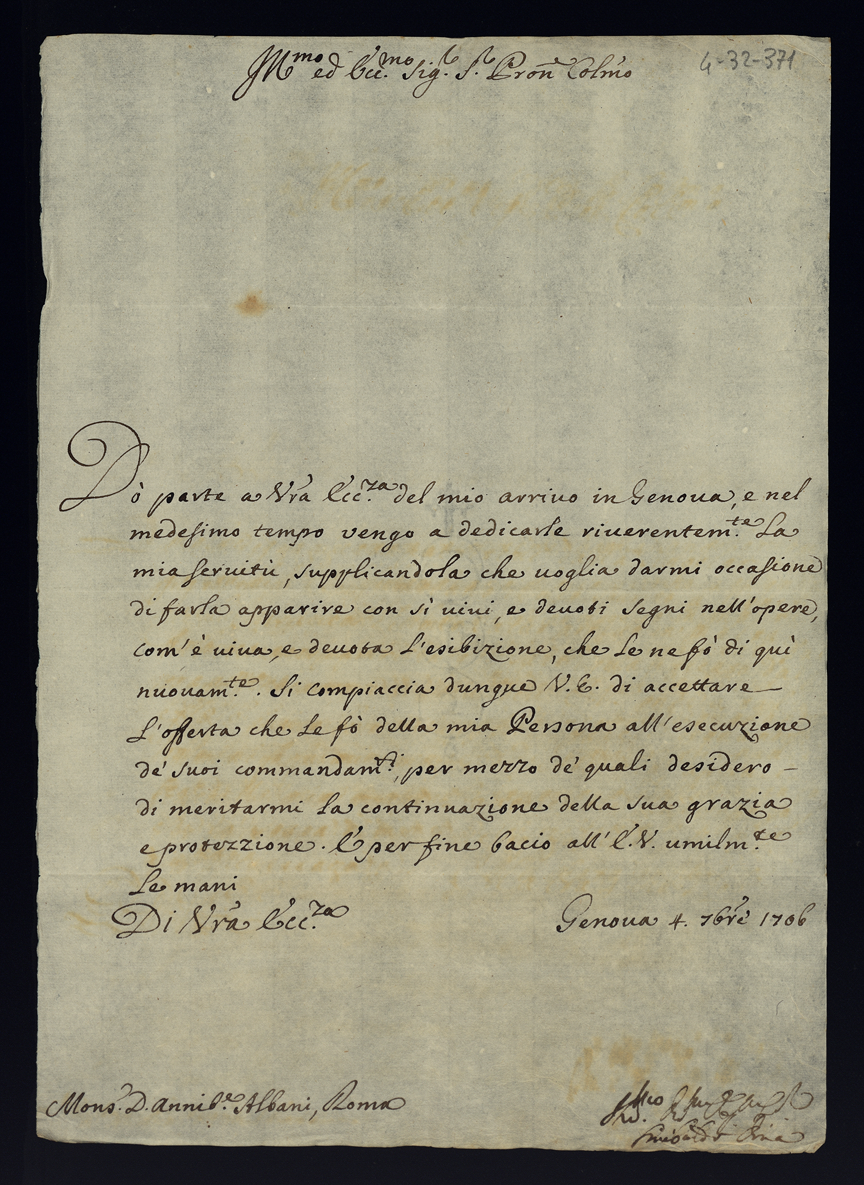 Ill.mo ed Ecc.mo Sig.r S.r Pron Colmo
4-32-371
Dò parte a Vrã Ecc.za del mio arriuo in Genoua, e nel
medesimo tempo vengo a dedicarle riuerentem.te La
mia seruitù, supplicandola che uoglia darmi occasione
di farla apparire con sì uiui, e deuoti segni nell'opere,
com'è uiua, e deuota l'esibizione, che Le ne fò di quì
nuouam.te. Si compiaccia dunque V.E. di accettare
L'offerta che Le fò della mia Persona all'esecuzione
de' suoi commandam.ti, per mezzo de' quali desidero
di meritarmi la continuazione della sua grazia
e protezzione. E per fine bacio all'E.V. umilm.te
Le mani
Di Vrã Ecc.za
Genoua 4. 7bre 1706
Mons.r D. Annib.e Albani, Roma